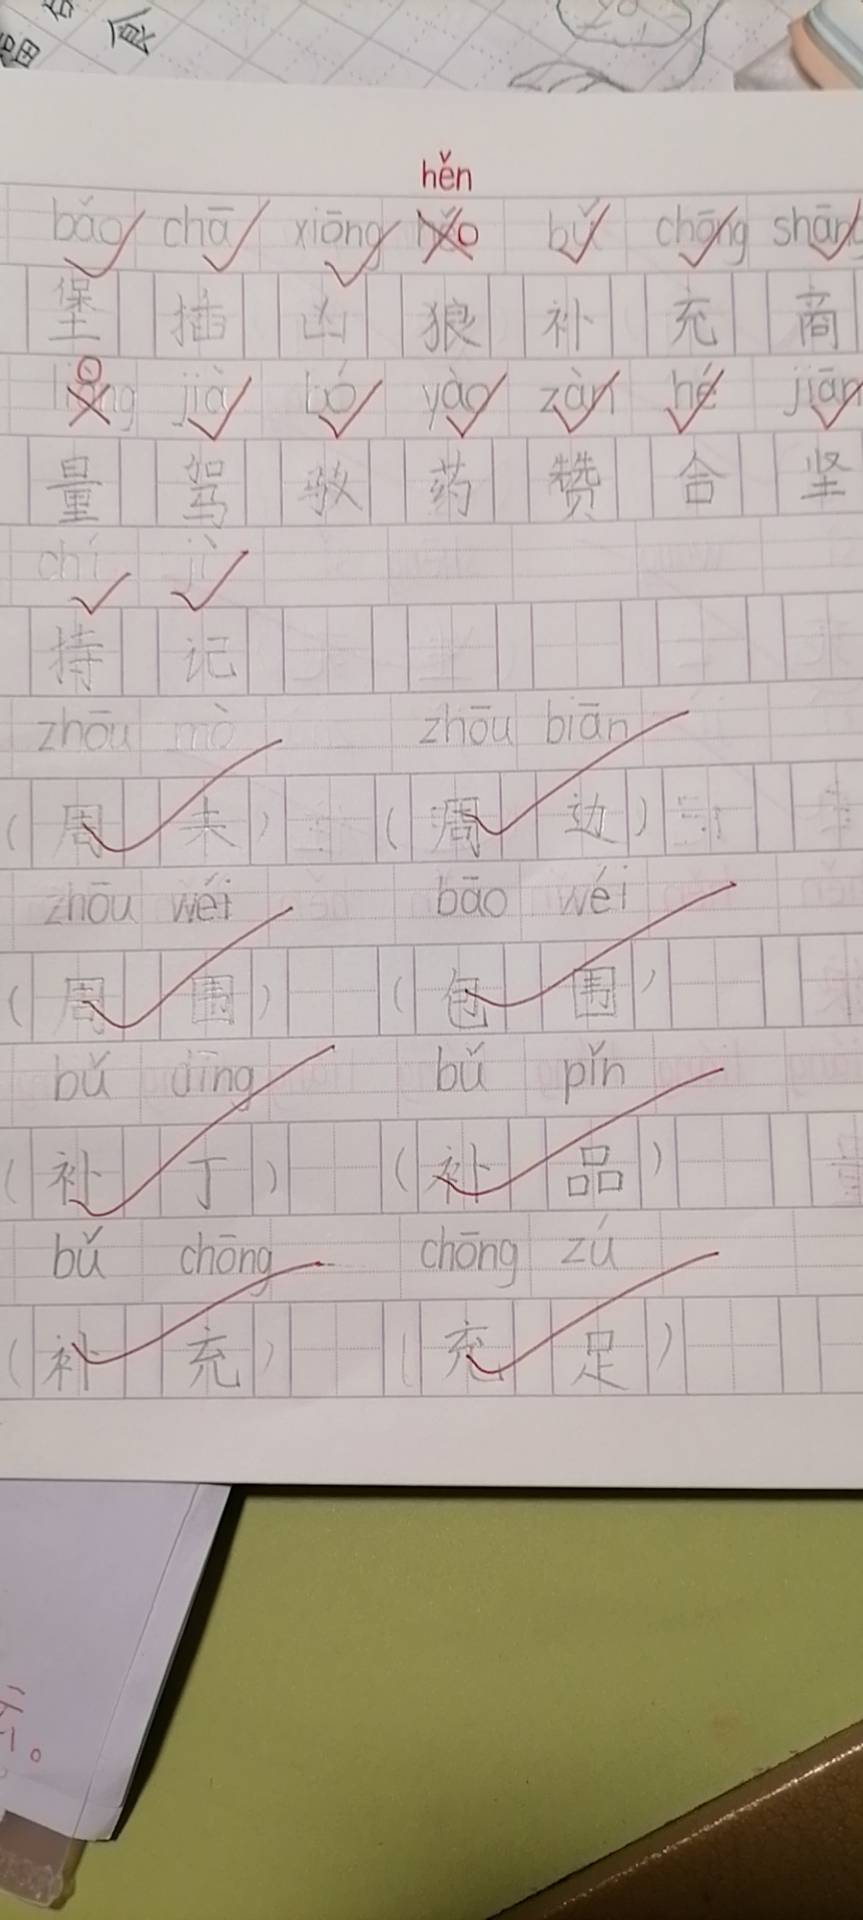 食
hěn
bǎo chā xiōng bǔ chōng shāng
堡 插 凶 狠 补 充 商
liàng jià bó yào zàn hé jiān
量 驾 驳 药 赞 合 坚
chí jì
持 记
zhōu mò zhōu biān
(周末) (周边)
zhōu wéi bāo wéi
(周围) (包围)
bǔ dīng bǔ pǐn
(补丁) (补品)
bǔ chōng chōng zú
(补充) (充足)